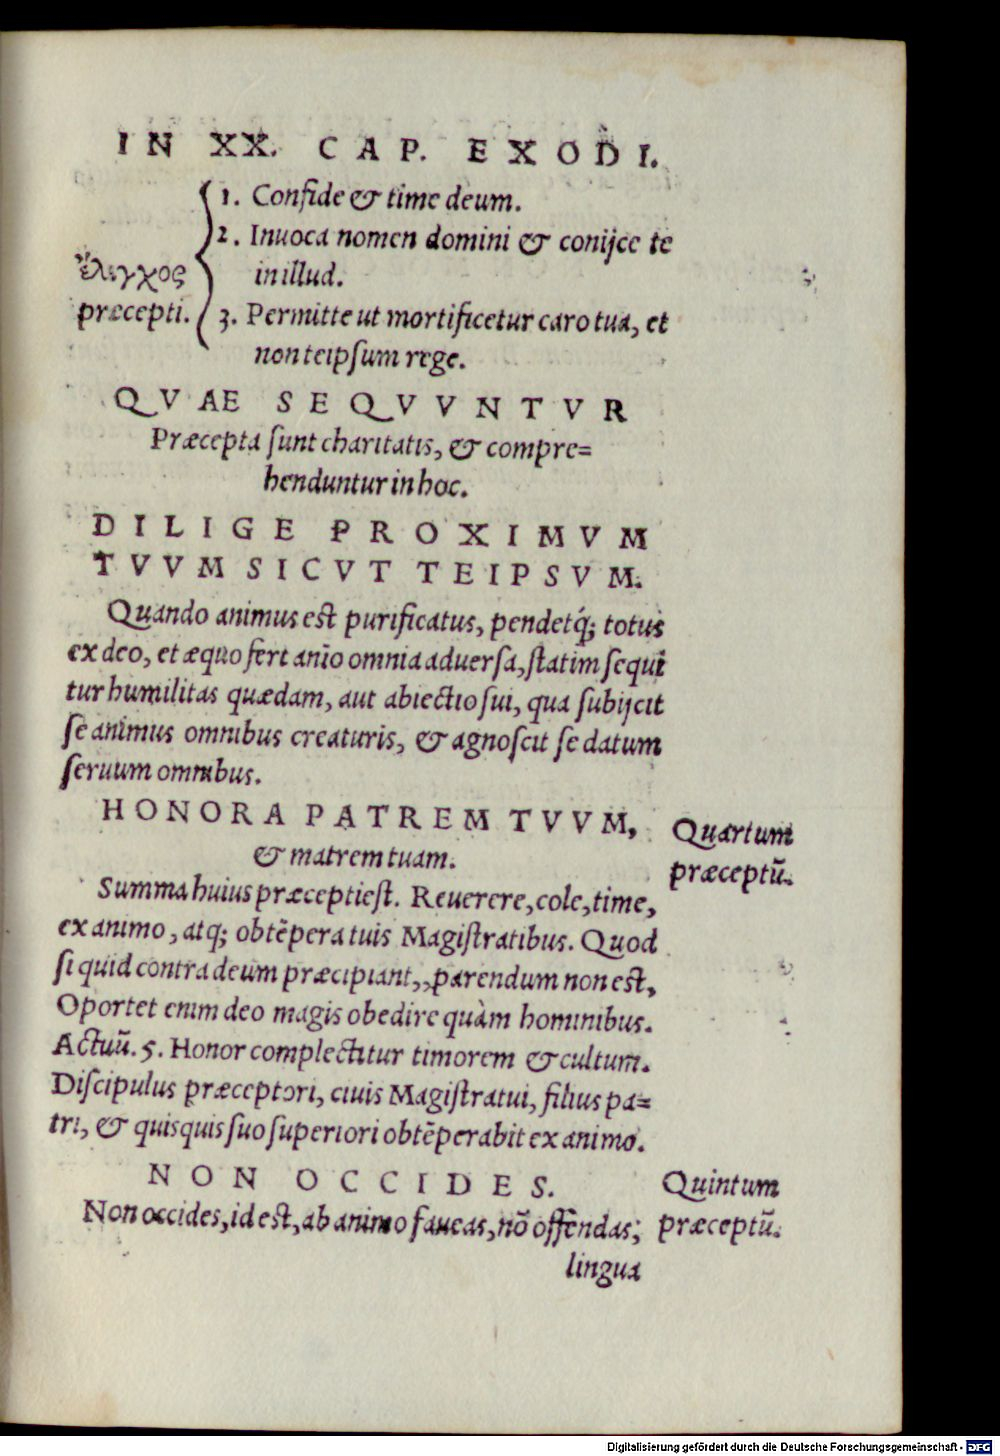 IN XX. CAP. EXODI.
1. Confide & time deum.
2. Inuoca nomen domini & conijce te
in illud.
ἔλεγχος
præcepti.
3. Permitte ut mortificetur caro tua, et
non teipsum rege.
QVAE SEQVVNTVR
Præcepta sunt charitatis, & compre=
henduntur in hoc.
DILIGE PROXIMVM
TVVM SICVT TEIPSVM.
Quando animus est purificatus, pendetq́; totus
ex deo, et æquo fert anĩo omnia aduersa, statim sequi
tur humilitas quædam, aut abiectio sui, qua subijcit
se animus omnibus creaturis, & agnoscit se datum
seruum omnibus.
HONORA PATREM TVVM,
& matrem tuam.
Quartum
præceptũ.
Summa huius præcepti est. Reuerere, cole, time,
ex animo, atq; obtẽpera tuis Magistratibus. Quod
si quid contra deum præcipiant,, parendum non est,
Oportet enim deo magis obedire quàm hominibus.
Actuũ. 5. Honor complectitur timorem & cultum.
Discipulus præceptori, ciuis Magistratui, filius pa=
tri, & quisquis suo superiori obtẽperabit ex animo.
NON OCCIDES.
Quintum
præceptũ.
Non occides, id est, ab animo faueas, nõ offẽndas;
lingua
Digitalisierung gefördert durch die Deutsche Forschungsgemeinschaft - DFG